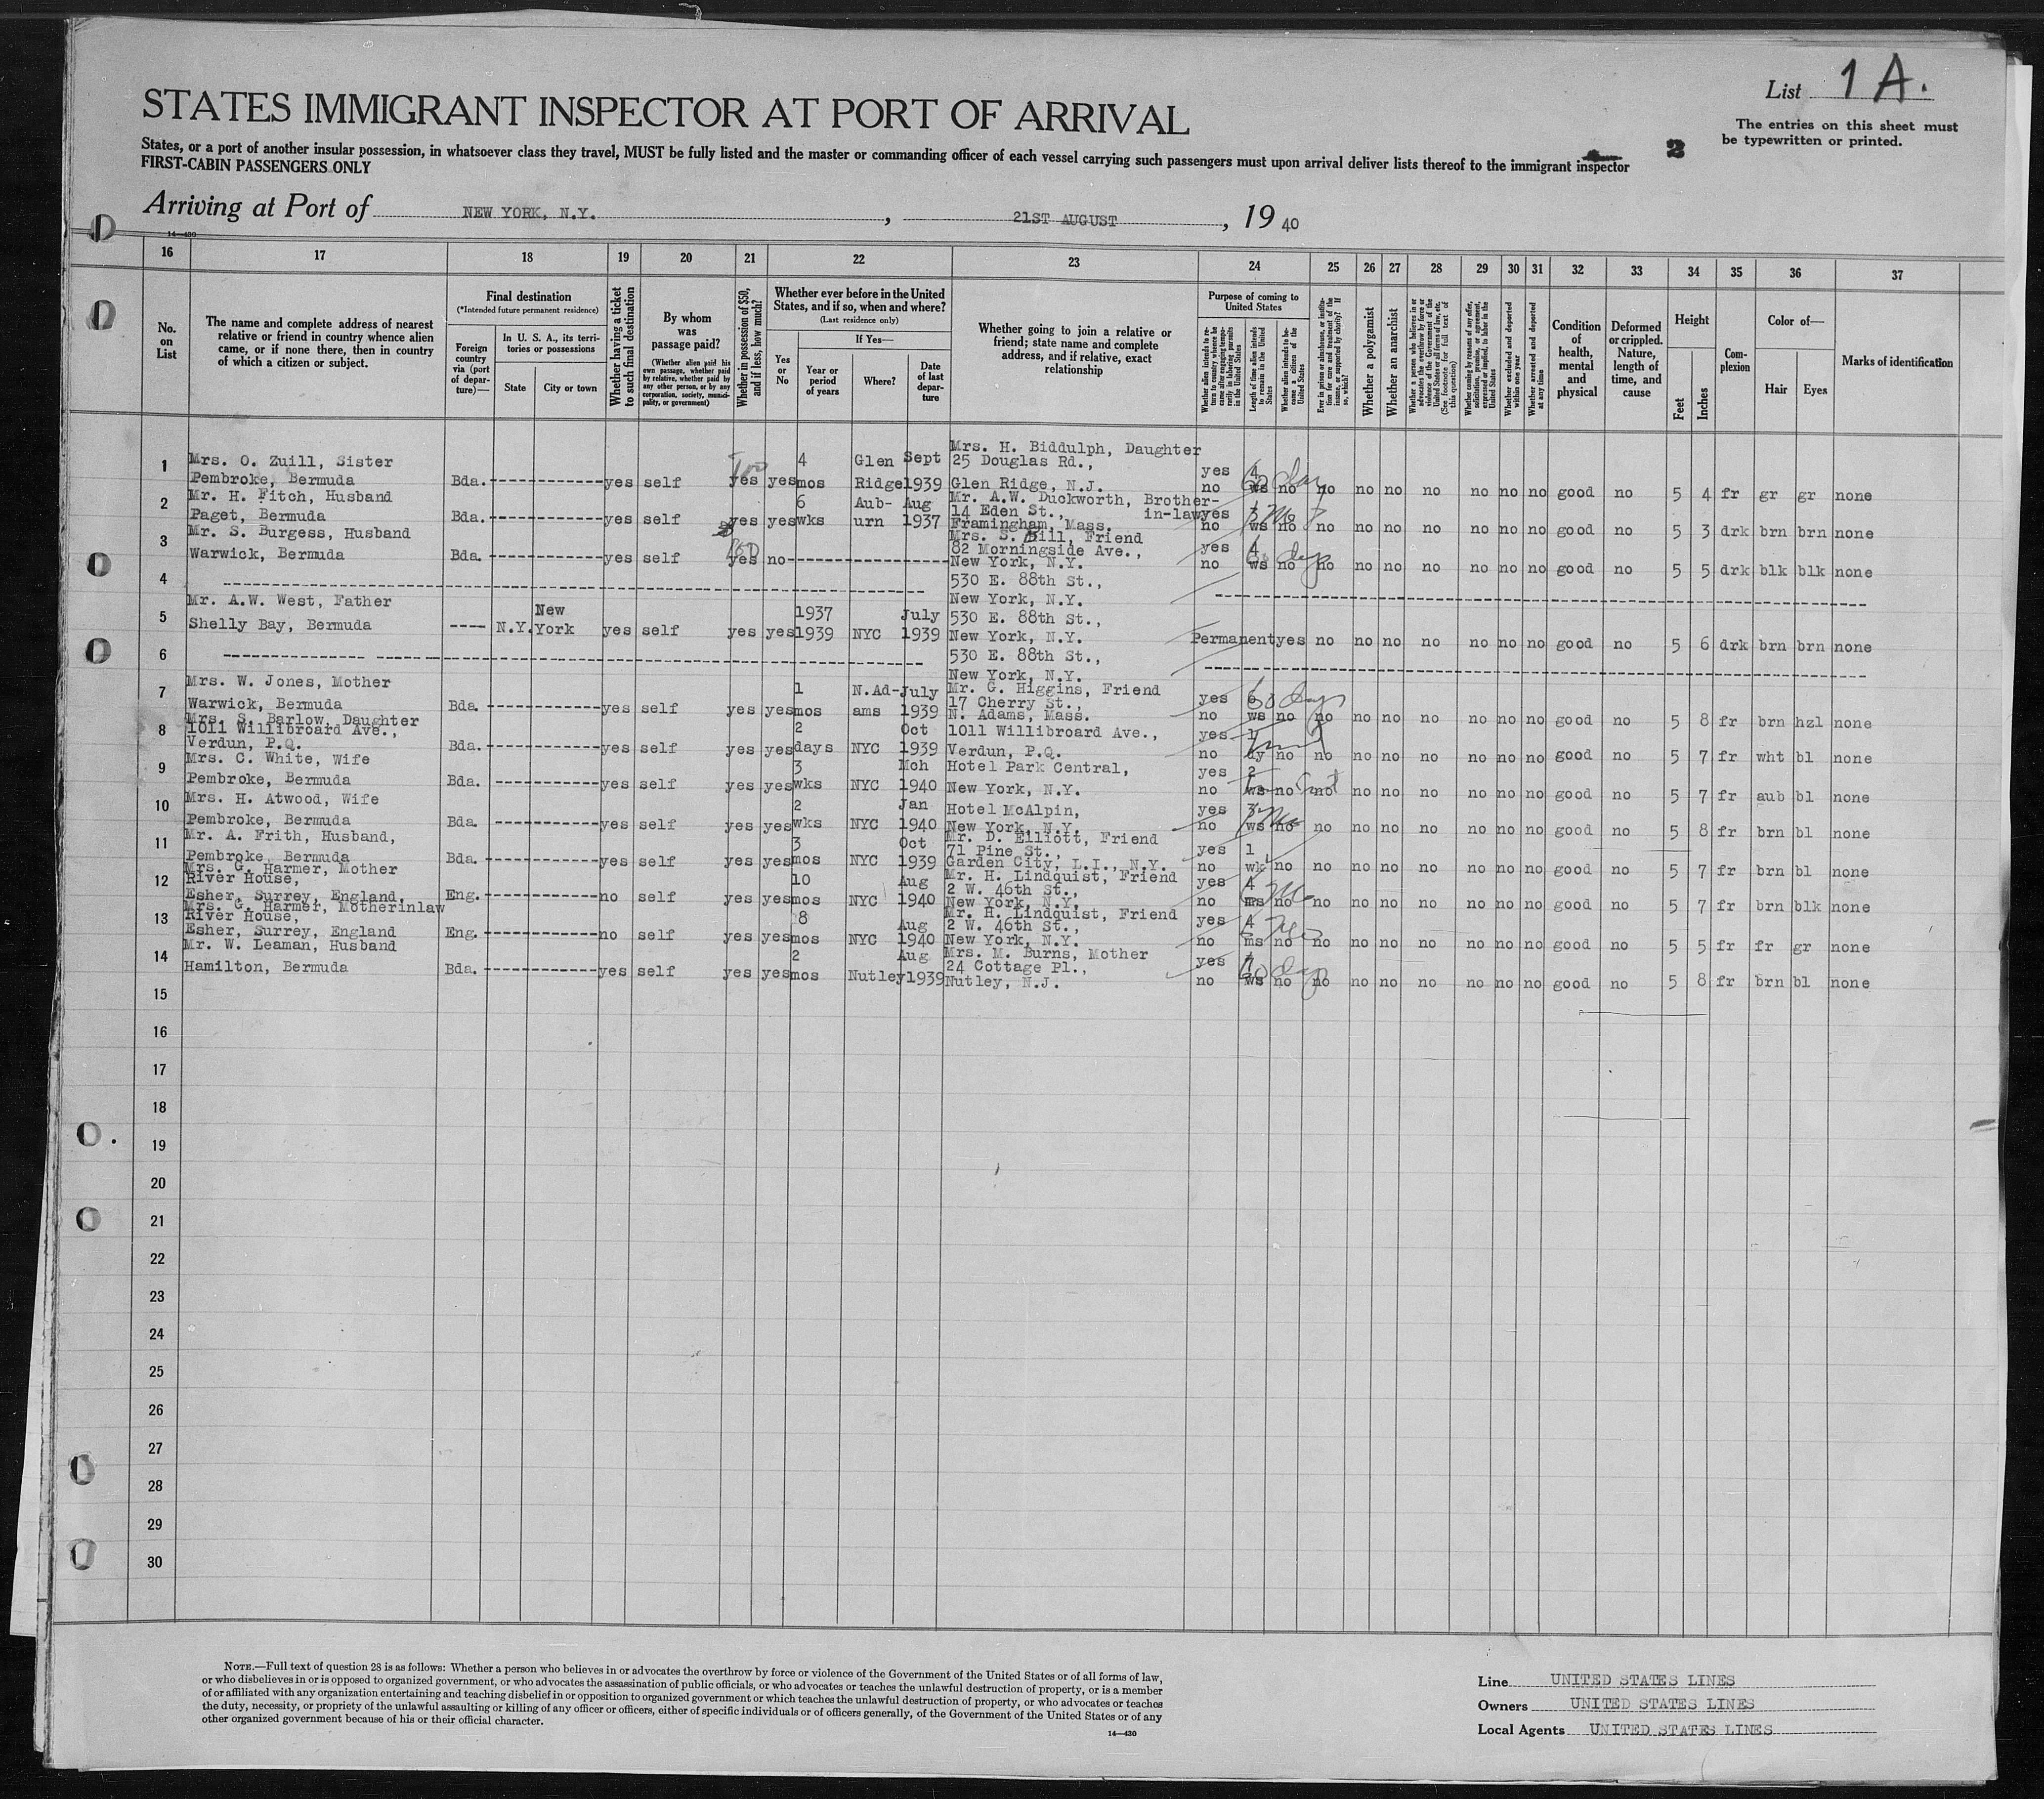 List 1 A.
STATES IMMIGRANT INSPECTOR AT PORT OF ARRIVAL
The entries on this sheet must
be typewritten or printed.
2
States, or a port of another insular possession, in whatsoever class they travel, MUST be fully listed and the master or commanding officer of each vessel carrying such passengers must upon arrival deliver lists thereof to the immigrant inspector
FIRST-CABIN PASSENGERS ONLY
Arriving at Port of NEW YORK, N.Y. , 21ST AUGUST , 19 40
14—430
16 17 18 19 20 21 22 23 24 25 26 27 28 29 30 31 32 33 34 35 36 37
No. on List
The name and complete address of nearest relative or friend in country whence alien came, or if none there, then in country of which a citizen or subject.
Final destination
(*Intended future permanent residence)
Foreign country via (port of departure)—
In U. S. A., its territories or possessions
State City or town
Whether having a ticket to such final destination
By whom was passage paid?
(Whether alien paid his own passage, whether paid by relative, whether paid by any other person, or by any corporation, society, municipality, or government)
Whether in possession of $50, and if less, how much?
Whether ever before in the United States, and if so, when and where?
(Last residence only)
Yes or No
If Yes—
Year or period of years
Where?
Date of last departure
Whether going to join a relative or friend; state name and complete address, and if relative, exact relationship
Purpose of coming to United States
Whether alien intends to return to country whence he came after engaging temporarily in laboring pursuits in the United States
Length of time alien intends to remain in the United States
Whether alien intends to become a citizen of the United States
Ever in prison or almshouse, or institution for care and treatment of the insane, or supported by charity? If so, which?
Whether a polygamist
Whether an anarchist
Whether a person who believes in or advocates the overthrow by force or violence of the Government of the United States or all forms of law, etc. (See footnote for full text of this question)
Whether coming by reasons of any offer, solicitation, promise, or agreement, expressed or implied, to labor in the United States
Whether excluded and deported within one year
Whether arrested and deported at any time
Condition of health, mental and physical
Deformed or crippled. Nature, length of time, and cause
Height
Feet Inches
Complexion
Color of—
Hair Eyes
Marks of identification
1 Mrs. O. Zuill, Sister Pembroke, Bermuda Bda. yes self yes yes 4 mos Glen Ridge Sept 1939 Mrs. H. Biddulph, Daughter 25 Douglas Rd., Glen Ridge, N.J. yes no 4 ws 60 days no no no no no no no no good no 5 4 fr gr gr none
2 Mr. H. Fitch, Husband Paget, Bermuda Bda. yes self yes yes 6 wks Aub-urn Aug 1937 Mr. A.W. Duckworth, Brother-in-law 14 Eden St., Framingham, Mass. yes no 3 ws no no no no no no no no good no 5 3 drk brn brn none
3 Mr. S. Burgess, Husband Warwick, Bermuda Bda. yes self yes no Mrs. S. Bill, Friend 82 Morningside Ave., New York, N.Y. yes no 4 ws 60 days no no no no no no no no good no 5 5 drk blk blk none
4 530 E. 88th St., New York, N.Y.
5 Mr. A.W. West, Father Shelly Bay, Bermuda ---- N.Y. New York yes self yes yes 1937 1939 NYC July 1939 530 E. 88th St., New York, N.Y. Permanent yes no no no no no no no good no 5 6 drk brn brn none
6 530 E. 88th St., New York, N.Y.
7 Mrs. W. Jones, Mother Warwick, Bermuda Bda. yes self yes yes 1 mos N.Ad-ams July 1939 Mr. G. Higgins, Friend 17 Cherry St., N. Adams, Mass. yes no 6 ws 60 days no no no no no no no no good no 5 8 fr brn hzl none
8 Mrs. S. Barlow, Daughter 1011 Willibroard Ave., Verdun, P.Q. Bda. yes self yes yes 2 days NYC Oct 1939 1011 Willibroard Ave., Verdun, P.Q. yes no 1 dy no no no no no no no no good no 5 7 fr wht bl none
9 Mrs. C. White, Wife Pembroke, Bermuda Bda. yes self yes yes 3 wks NYC Mch 1940 Hotel Park Central, New York, N.Y. yes no 2 ws no no no no no no no no good no 5 7 fr aub bl none
10 Mrs. H. Atwood, Wife Pembroke, Bermuda Bda. yes self yes yes 2 wks NYC Jan 1940 Hotel McAlpin, New York, N.Y. yes no 3 ws no no no no no no no no good no 5 8 fr brn bl none
11 Mr. A. Frith, Husband, Pembroke, Bermuda Bda. yes self yes yes 3 mos NYC Oct 1939 Mr. D. Elliott, Friend 71 Pine St., Garden City, L.I., N.Y. yes no 1 wk no no no no no no no no good no 5 7 fr brn bl none
12 Mrs. G. Harmer, Mother River House, Esher, Surrey, England, Eng. no self yes yes 10 mos NYC Aug 1940 Mr. H. Lindquist, Friend 2 W. 46th St., New York, N.Y. yes no 4 ms no no no no no no no no good no 5 7 fr brn blk none
13 Mrs. G. Harmer, Motherinlaw River House, Esher, Surrey, England Eng. no self yes yes 8 mos NYC Aug 1940 Mr. H. Lindquist, Friend 2 W. 46th St., New York, N.Y. yes no 4 ms no no no no no no no no good no 5 5 fr fr gr none
14 Mr. W. Leaman, Husband Hamilton, Bermuda Bda. yes self yes yes 2 mos Nutley Aug 1939 Mrs. M. Burns, Mother 24 Cottage Pl., Nutley, N.J. yes no ws 60 days no no no no no no no no good no 5 8 fr brn bl none
15
16
17
18
19
20
21
22
23
24
25
26
27
28
29
30
NOTE.—Full text of question 28 is as follows: Whether a person who believes in or advocates the overthrow by force or violence of the Government of the United States or of all forms of law,
or who disbelieves in or is opposed to organized government, or who advocates the assassination of public officials, or who advocates or teaches the unlawful destruction of property, or is a member
of or affiliated with any organization entertaining and teaching disbelief in or opposition to organized government or which teaches the unlawful destruction of property, or who advocates or teaches
the duty, necessity, or propriety of the unlawful assaulting or killing of any officer or officers, either of specific individuals or of officers generally, of the Government of the United States or of any
other organized government because of his or their official character.
14—430
Line UNITED STATES LINES
Owners UNITED STATES LINES
Local Agents UNITED STATES LINES